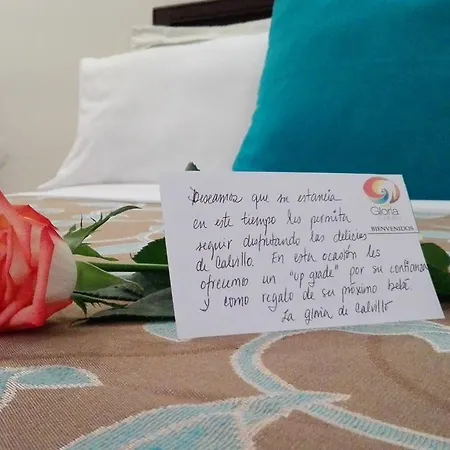 Gloria
BIENVENIDOS
Deseamos que su estancia
en este tiempo les permita
seguir disfrutando las delicias
de Calvillo. En esta ocasión les
ofrecemos un "up grade" por su confianza
y como regalo de su próximo bebé.
La Gloria de Calvillo